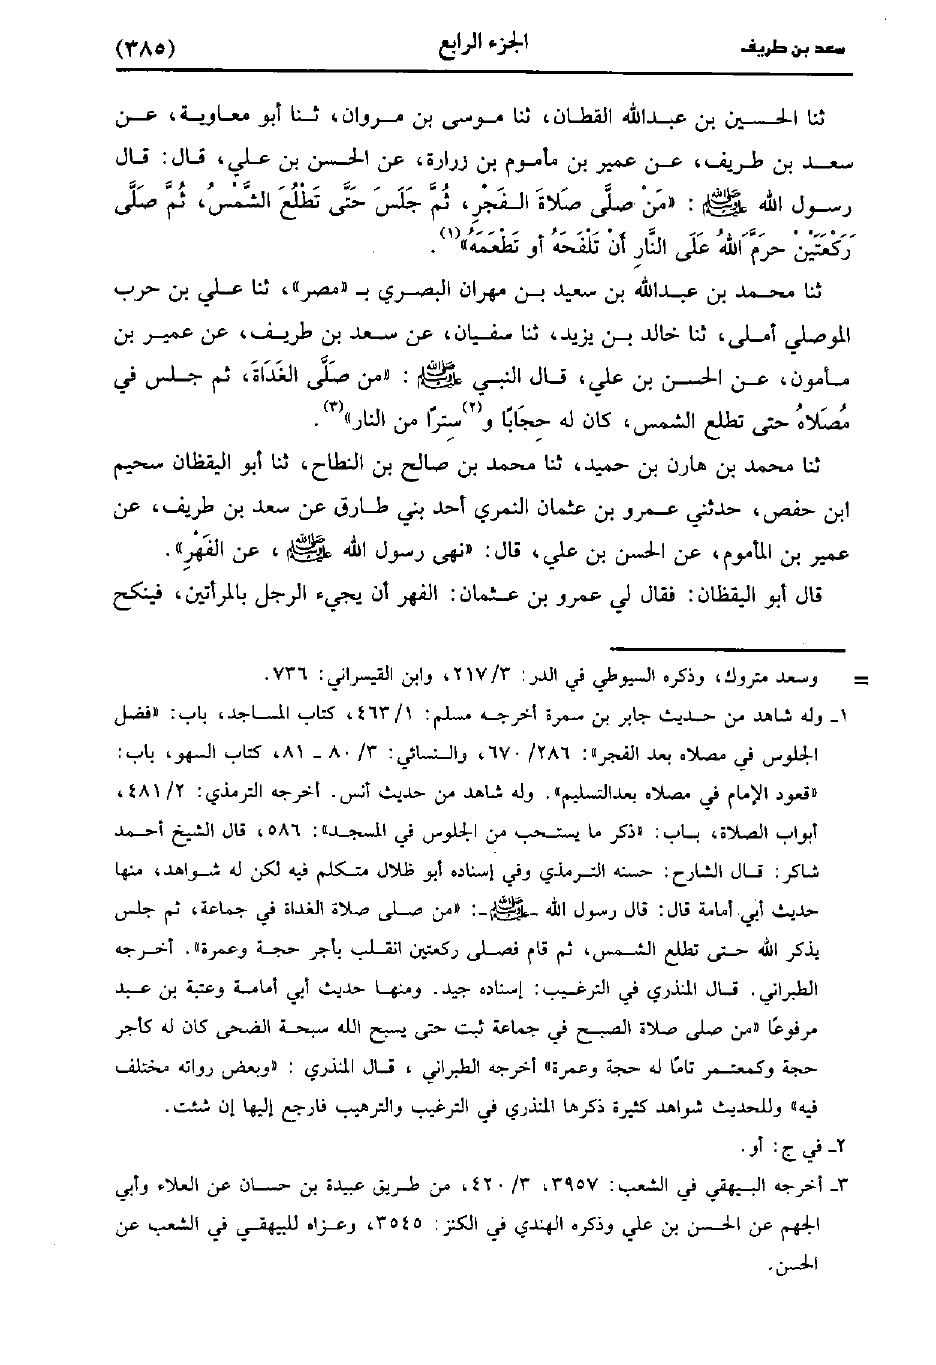 سعد بن طريف الجزء الرابع (٣٨٥)
ثنا الحسين بن عبدالله القطان، ثنا موسى بن مروان، ثنا أبو معاوية، عن
سعد بن طريف، عن عمير بن مأموم بن زرارة، عن الحسن بن علي، قال: قال
رسول الله ﷺ : «مَنْ صلَّى صَلَاةَ الْفَجْرِ، ثُمَّ جَلَسَ حَتَّى تَطْلُعَ الشَّمْسُ، ثُمَّ صلَّى
رَكْعَتَيْنْ حَرَّمَ اللهُ عَلَى النَّارِ أَنْ تَلْفَحَهُ أو تَطْعَمَهُ»(١).
ثنا محمد بن عبدالله بن سعيد بن مهران البصري بـ «مصر»، ثنا علي بن حرب
الموصلي أملى، ثنا خالد بن يزيد، ثنا سفيان، عن سعد بن طريف، عن عمير بن
مأمون، عن الحسن بن علي، قال النبي ﷺ : «من صلَّى الغَدَاةَ، ثم جلس في
مُصَلاهُ حتى تطلع الشمس، كان له حجَابًا و(٢)سِترًا من النار»(٣).
ثنا محمد بن هارن بن حميد، ثنا محمد بن صالح بن النطاح، ثنا أبو اليقظان سحيم
ابن حفص، حدثني عمرو بن عثمان النمري أحد بني طارق عن سعد بن طريف، عن
عمير بن المأموم، عن الحسن بن علي، قال: «نهى رسول الله ﷺ ، عن الفَهْرِ».
قال أبو اليقظان: فقال لي عمرو بن عثمان: الفهر أن يجيء الرجل بالمرأتين، فينكح
= وسعد متروك، وذكره السيوطي في الدر: ٢١٧/٣، وابن القيسراني: ٧٣٦.
١ـ وله شاهد من حديث جابر بن سمرة أخرجه مسلم: ٤٦٣/١، كتاب المساجد، باب: «فضل
الجلوس في مصلاه بعد الفجر»: ٢٨٦/ ٦٧٠، والنسائي: ٣/ ٨٠ ـ ٨١، كتاب السهو، باب:
«قعود الإمام في مصلاه بعدالتسليم». وله شاهد من حديث أنس. أخرجه الترمذي: ٢/ ٤٨١،
أبواب الصلاة، باب: «ذكر ما يستحب من الجلوس في المسجد»: ٥٨٦، قال الشيخ أحمد
شاكر: قال الشارح: حسنه الترمذي وفي إسناده أبو ظلال متكلم فيه لكن له شواهد، منها
حديث أبي أمامة قال: قال رسول الله ـﷺـ: «من صلى صلاة الغداة في جماعة، ثم جلس
يذكر الله حتى تطلع الشمس، ثم قام فصلى ركعتين انقلب بأجر حجة وعمرة». أخرجه
الطبراني. قال المنذري في الترغيب: إسناده جيد. ومنها حديث أبي أمامة وعتبة بن عبد
مرفوعًا «من صلى صلاة الصبح في جماعة ثبت حتى يسبح الله سبحة الضحى كان له كأجر
حجة وكمعتمر تامًا له حجة وعمرة» أخرجه الطبراني ، قال المنذري : «وبعض رواته مختلف
فيه» وللحديث شواهد كثيرة ذكرها المنذري في الترغيب والترهيب فارجع إليها إن شئت.
٢ـ في ج: أو.
٣ـ أخرجه البيهقي في الشعب: ٣٩٥٧، ٣/ ٤٢٠، من طريق عبيدة بن حسان عن العلاء وأبي
الجهم عن الحسن بن علي وذكره الهندي في الكنز: ٣٥٤٥، وعزاه للبيهقي في الشعب عن
الحسن.